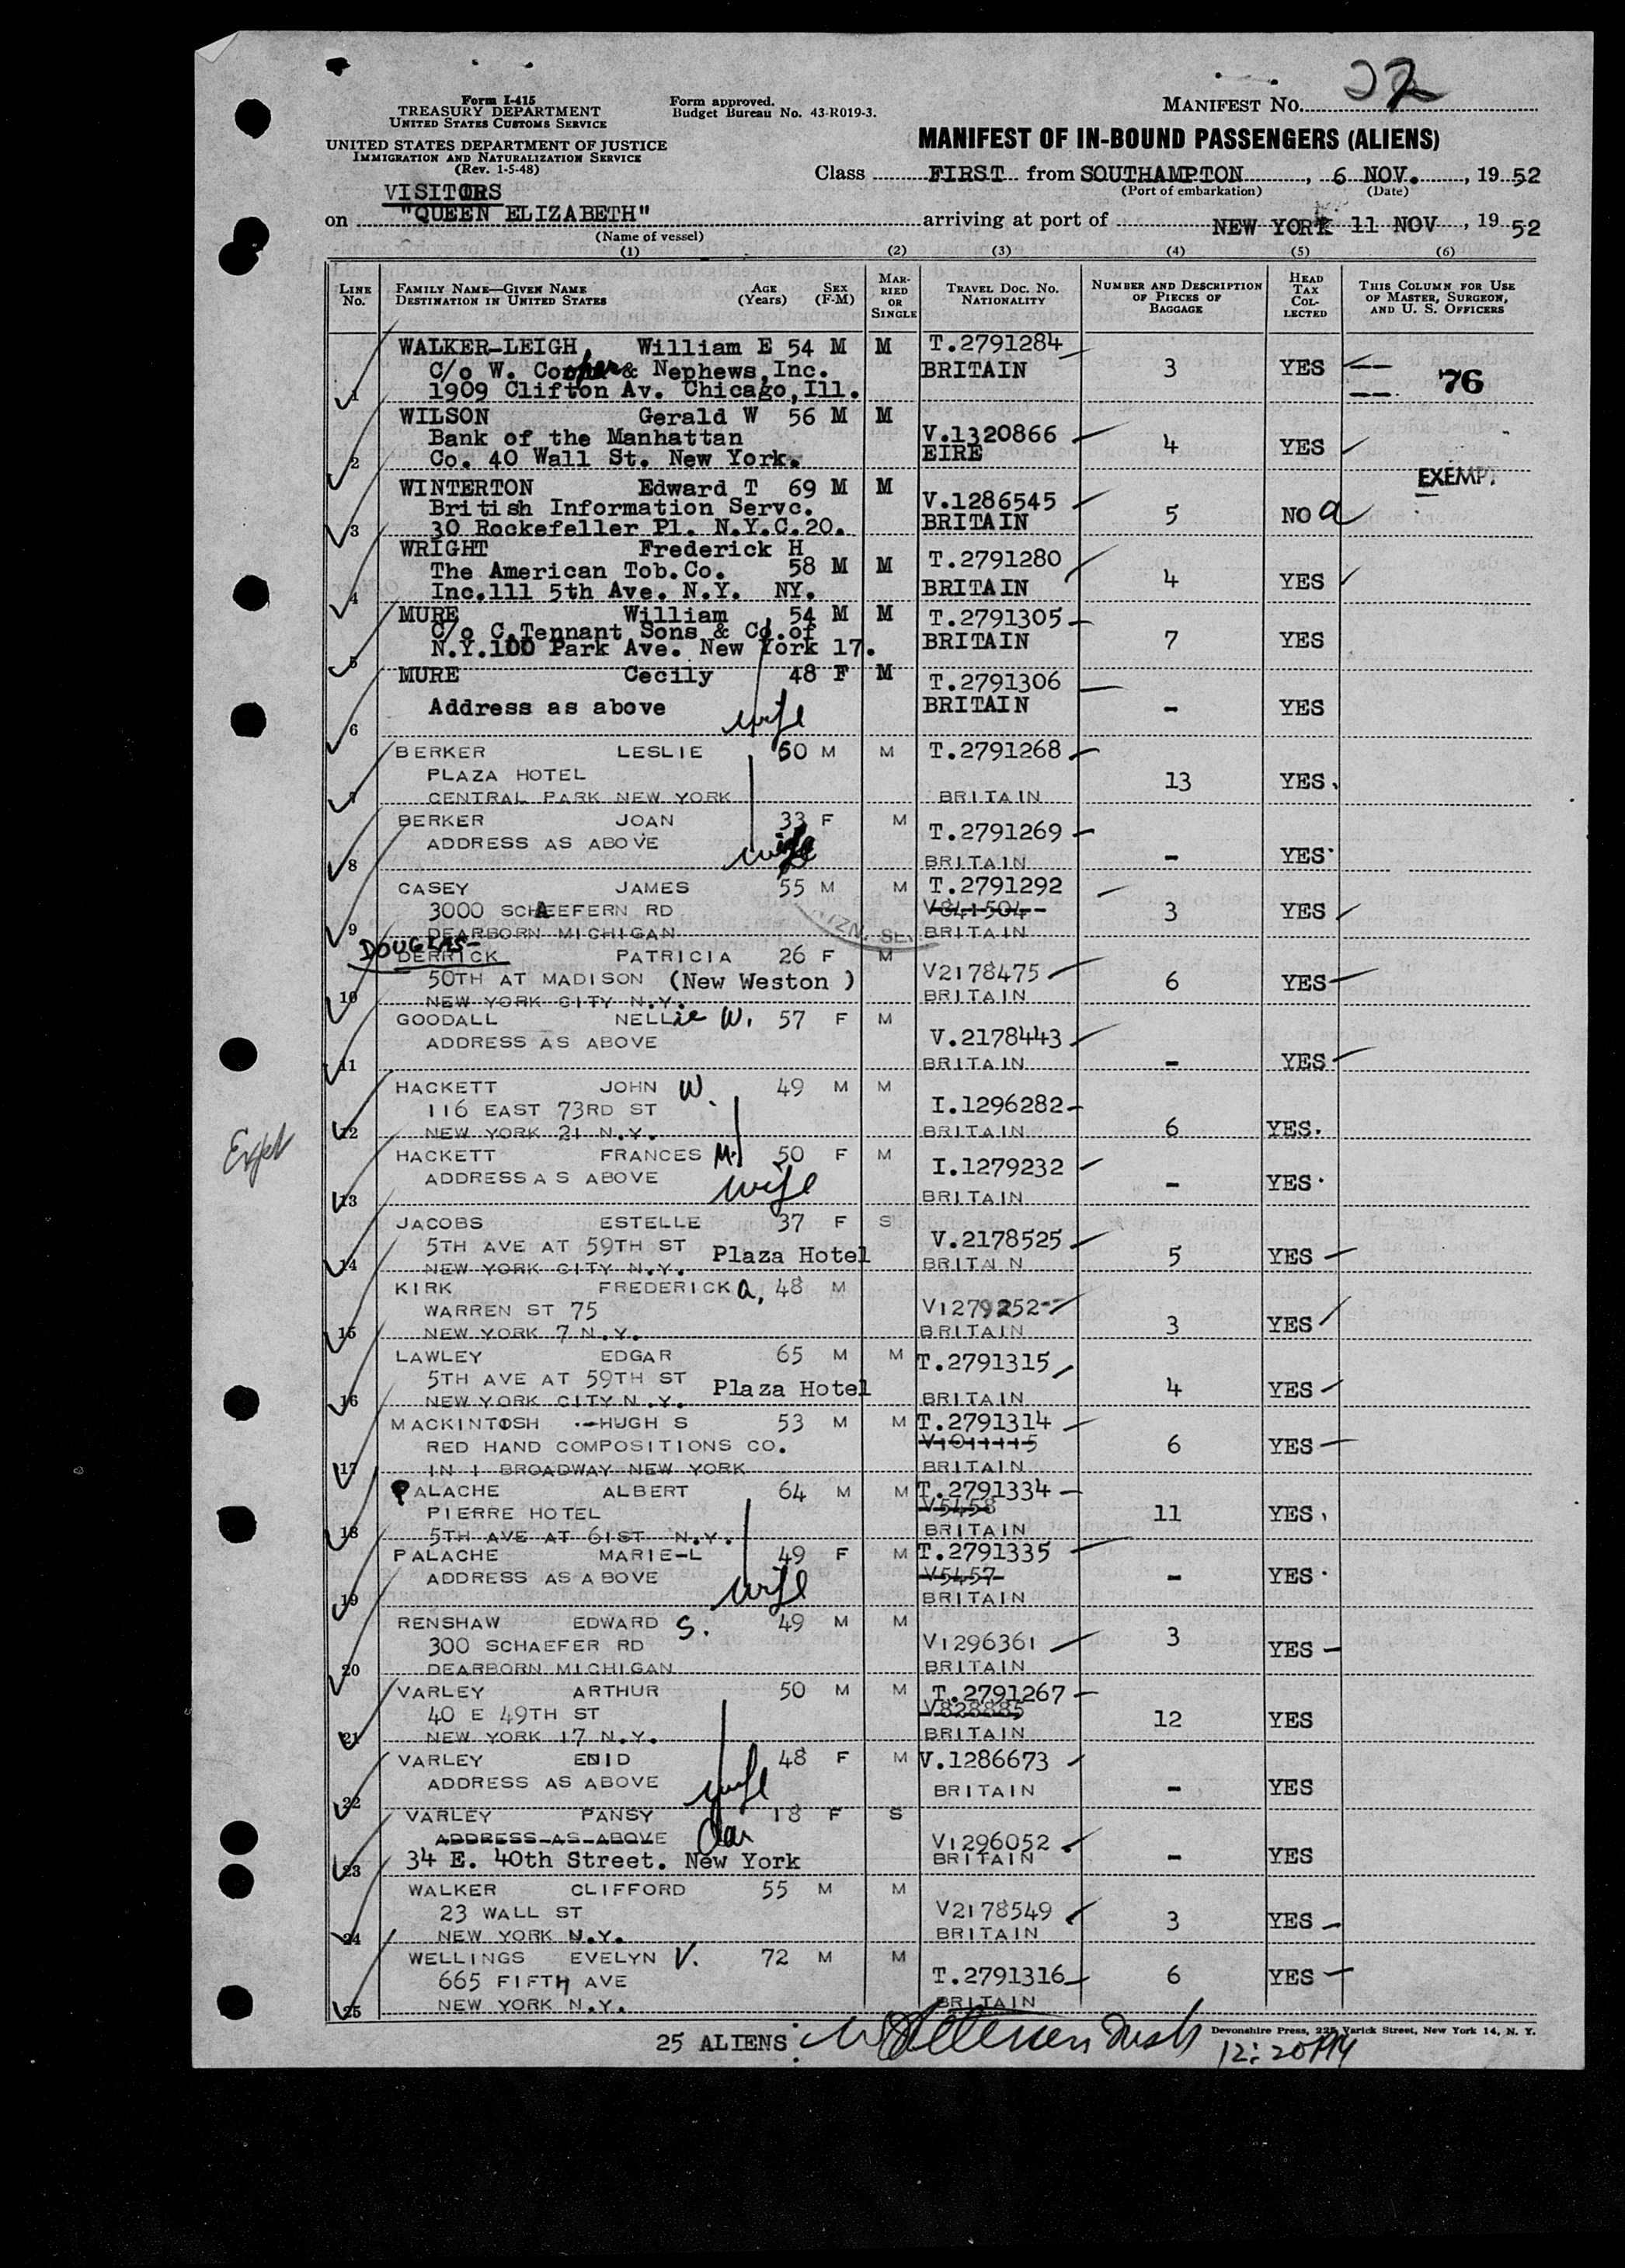 Form I-415
TREASURY DEPARTMENT
UNITED STATES CUSTOMS SERVICE
UNITED STATES DEPARTMENT OF JUSTICE
IMMIGRATION AND NATURALIZATION SERVICE
(Rev. 1-5-48)
Form approved.
Budget Bureau No. 43-R019-3.
MANIFEST NO. 22
MANIFEST OF IN-BOUND PASSENGERS (ALIENS)
Class FIRST from SOUTHAMPTON, 6 NOV., 19 52
(Port of embarkation) (Date)
VISITORS
on "QUEEN ELIZABETH" arriving at port of NEW YORK 11 NOV, 19 52
(Name of vessel)
(1) (2) (3) (4) (5) (6)
LINE NO. FAMILY NAME—GIVEN NAME DESTINATION IN UNITED STATES AGE (Years) SEX (F-M) MARRIED OR SINGLE TRAVEL DOC. NO. NATIONALITY NUMBER AND DESCRIPTION OF PIECES OF BAGGAGE HEAD TAX COLLECTED THIS COLUMN FOR USE OF MASTER, SURGEON, AND U. S. OFFICERS
WALKER-LEIGH William E 54 M M T.2791284
C/o W. Cooper & Nephews, Inc. BRITAIN 3 YES 76
1 1909 Clifton Av. Chicago, Ill.
WILSON Gerald W 56 M M
Bank of the Manhattan V.1320866 4 YES
2 Co. 40 Wall St. New York. EIRE
EXEMPT
WINTERTON Edward T 69 M M
British Information Servc. V.1286545 5 NO a
3 30 Rockefeller Pl. N.Y.C.20. BRITAIN
WRIGHT Frederick H
The American Tob.Co. 58 M M T.2791280 4 YES
4 Inc.111 5th Ave. N.Y. NY. BRITAIN
MURE William 54 M M T.2791305
C/o C.Tennant Sons & Co.of BRITAIN 7 YES
5 N.Y.100 Park Ave. New York 17.
MURE Cecily 48 F M T.2791306
Address as above BRITAIN - YES
6 wife
BERKER LESLIE 50 M M T.2791268
PLAZA HOTEL 13 YES
7 CENTRAL PARK NEW YORK BRITAIN
BERKER JOAN 33 F M T.2791269
ADDRESS AS ABOVE wife
8 BRITAIN - YES
CASEY JAMES 55 M M T.2791292
3000 SCHAEFERN RD V841504 3 YES
9 DEARBORN MICHIGAN BRITAIN
DOUGLAS-
DERRICK PATRICIA 26 F M
50TH AT MADISON (New Weston ) V2178475 6 YES
10 NEW YORK CITY N.Y. BRITAIN
GOODALL NELLie W. 57 F M
ADDRESS AS ABOVE V.2178443
11 BRITAIN - YES
HACKETT JOHN W. 49 M M
116 EAST 73RD ST I.1296282
12 NEW YORK 21 N.Y. BRITAIN 6 YES.
HACKETT FRANCES M. 50 F M
ADDRESS AS ABOVE wife I.1279232 - YES
13 BRITAIN
JACOBS ESTELLE 37 F S
5TH AVE AT 59TH ST Plaza Hotel V.2178525 5 YES
14 NEW YORK CITY N.Y. BRITAIN
KIRK FREDERICK A, 48 M
WARREN ST 75 V1279252
15 NEW YORK 7 N.Y. BRITAIN 3 YES
LAWLEY EDGAR 65 M M T.2791315
5TH AVE AT 59TH ST Plaza Hotel 4 YES
16 NEW YORK CITY N.Y. BRITAIN
MACKINTOSH HUGH S 53 M M T.2791314
RED HAND COMPOSITIONS CO. V1011115 6 YES
17 IN 1 BROADWAY NEW YORK BRITAIN
PALACHE ALBERT 64 M M T.2791334
PIERRE HOTEL V5458 11 YES
18 5TH AVE AT 61ST N.Y. BRITAIN
PALACHE MARIE-L 49 F M T.2791335
ADDRESS AS ABOVE wife V5457 - YES
19 BRITAIN
RENSHAW EDWARD S. 49 M M
300 SCHAEFER RD V1296361 3 YES
20 DEARBORN MICHIGAN BRITAIN
VARLEY ARTHUR 50 M M T.2791267
40 E 49TH ST V828885 12 YES
21 NEW YORK 17 N.Y. BRITAIN
VARLEY ENID 48 F M V.1286673
ADDRESS AS ABOVE wife BRITAIN - YES
22
VARLEY PANSY 18 F S
ADDRESS AS ABOVE dau V1296052
23 34 E. 40th Street. New York BRITAIN - YES
WALKER CLIFFORD 55 M M
23 WALL ST V2178549 3 YES
24 NEW YORK N.Y. BRITAIN
WELLINGS EVELYN V. 72 M M
665 FIFTH AVE T.2791316 6 YES
25 NEW YORK N.Y. BRITAIN
25 ALIENS
Devonshire Press, 225 Varick Street, New York 14, N. Y.
12:20 PM